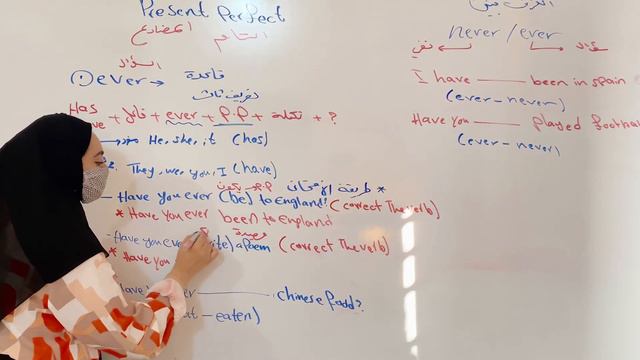 Present Perfect
المضارع التام
السؤال
① ever → قاعدة
تصريف ثالث
Has
Have + فاعل + ever + p.p + تكملة + ?
He, she, it (has)
They, we, you, I (have)
طريقة الامتحان *
- Have you ever (be) to England? (correct the verb)
* Have you ever been to England
قصيدة
- Have you ever (write) a poem (correct The verb)
* Have you
Have ——— chinese food?
eaten)
الفرق بين
never / ever
نفي سؤال
I have ——— been in spain
(ever - never)
Have you ——— played football
(ever - never)